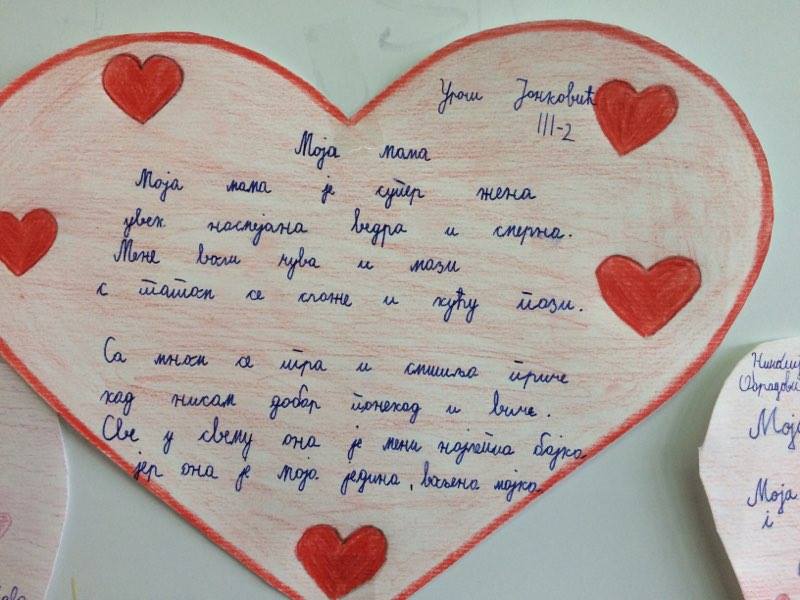 Урош Јонковић
III-2
Моја мама
Моја мама је супер жена
увек насмејана ведра и спермна.
Мене воли чува и мази
с татом се слаже и кућу пази.
Са мном се игра и смишља приче
кад нисам добар понекад и виче.
Све у свему она је мени најлепша бајка
јер она је моја једина, вољена мајка.
Моја
Моја
і